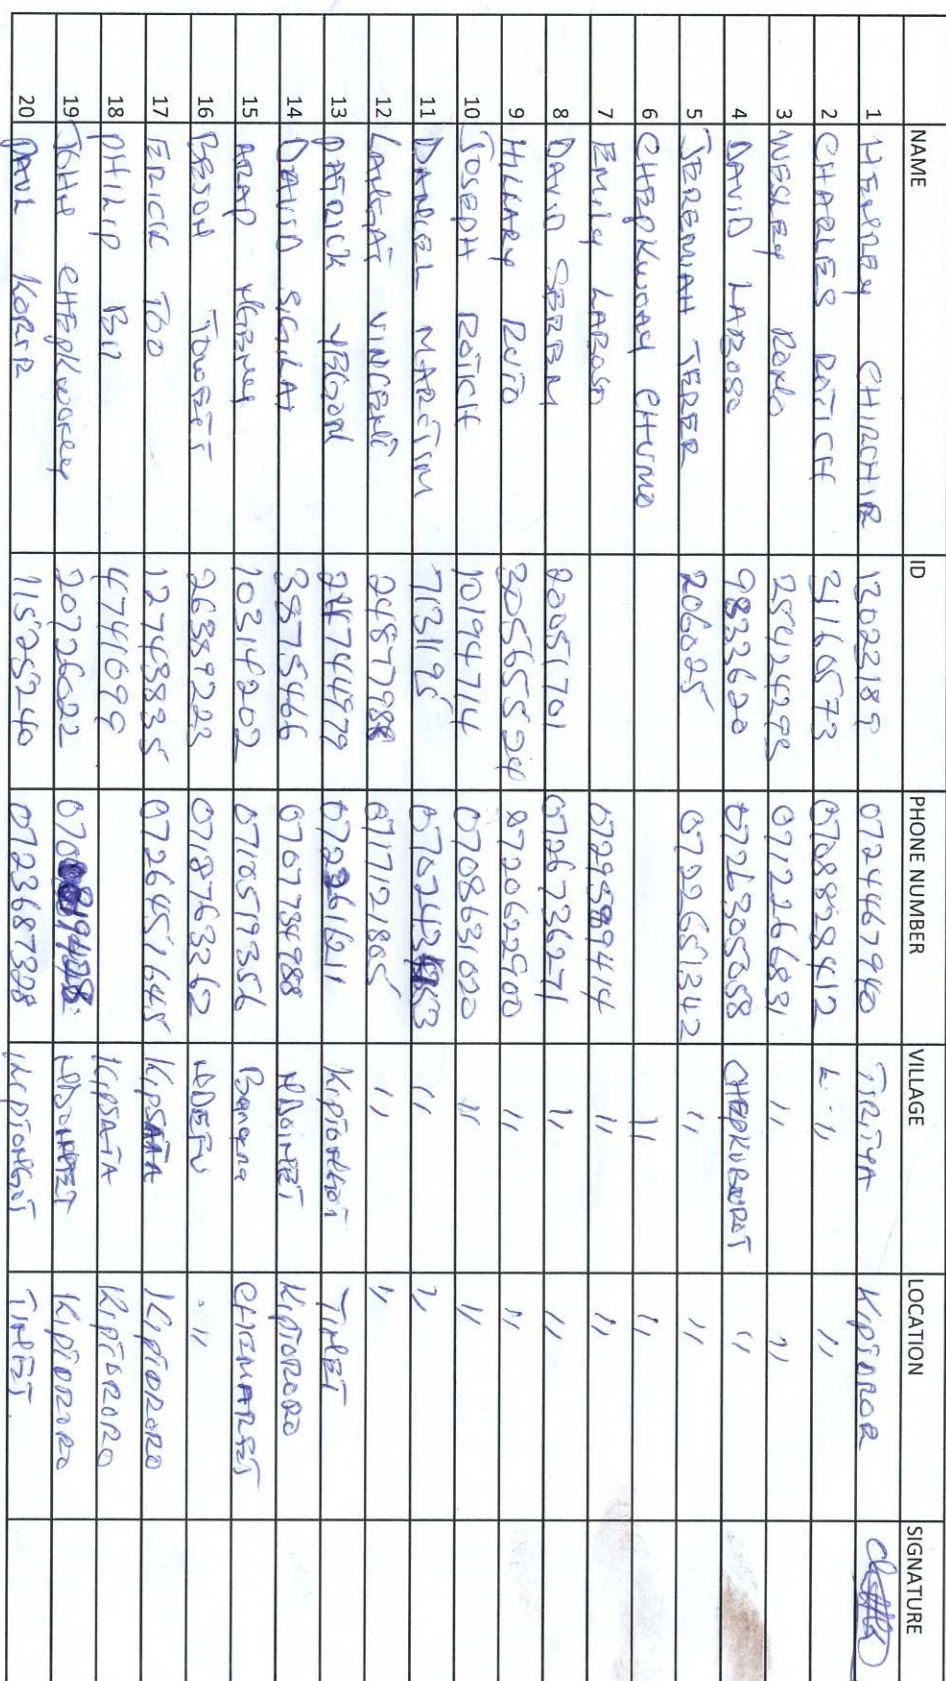 NAME ID PHONE NUMBER VILLAGE LOCATION SIGNATURE
1 HENRREY CHIRCHIR 13023189 0724467940 TIRITYA KIPTOROR
2 CHARLES ROTICH 31160573 0708828412 " "
3 WESLEY RONO 25424293 0712266831 " "
4 DAVID LABOSO 9833620 0726305058 CHEPKUBURAT "
5 JEREMIAH TERER 206025 0722651342 " "
6 CHEPKWONY CHUMO " "
7 EMILY LABOSO 0729589414 " "
8 DAVID SEREM 20051701 0726736271 " "
9 HILLARY RUTO 30565524 0720622900 " "
10 JOSEPH ROTICH 10194714 0708631020 " "
11 DANIEL MARITIM 7131195 " "
12 LANGAT VINCENT 24877988 0717121885 " "
13 PATRICK YEGON 24744979 0722261211 KIPTONGOT TINET
14 DAVID SIGILAI 38775466 0707734988 NDOINET KIPTORORO
15 ARAP NGENY 10314202 0710519356 CHEMARET
16 BESON TOWETT 26389223 0718763262 NDEFU "
17 ERICK TOO 12743835 0726451645 KIPSATA KIPTORORO
18 PHILIP BII 4741099 KIPSATA KIPTORORO
19 JOHN CHEPKWONY 20726022 NDOINET KIPTORORO
20 PAUL KORIR 11525240 0723687328 KIPTONGOT TINET